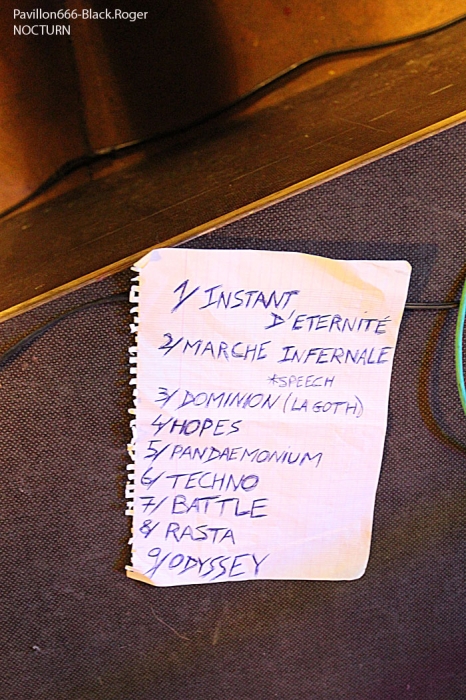 Pavillon666-Black.Roger
NOCTURN
1/ INSTANT
D'ETERNITÉ
2/ MARCHE INFERNALE
*SPEECH
3/ DOMINION (LA GOTH)
4/ HOPES
5/ PANDAEMONIUM
6/ TECHNO
7/ BATTLE
8/ RASTA
9/ ODYSSEY